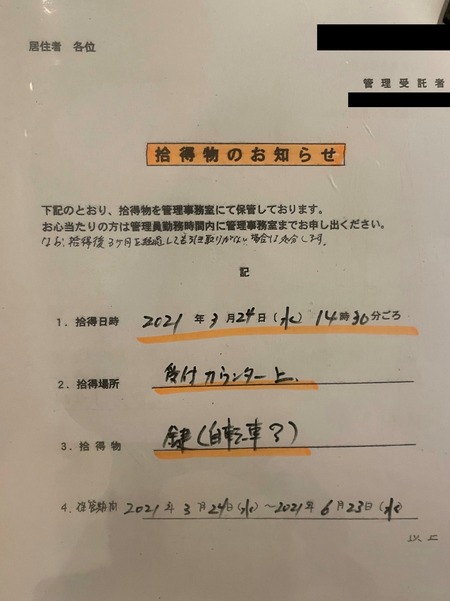 居住者 各位
管理受託者
拾得物のお知らせ
下記のとおり、拾得物を管理事務室にて保管しております。
お心当たりの方は管理員勤務時間内に管理事務室までお申し出ください。
なお、拾得後3ヶ月を経過してお引き取りがない場合は処分します。
記
1．拾得日時 2021年3月24日(水) 14時30分ごろ
2．拾得場所 受付カウンター上、
3．拾得物 鍵(自転車？)
4．保管期間 2021年3月24日(水)～2021年6月23日(水)
以上